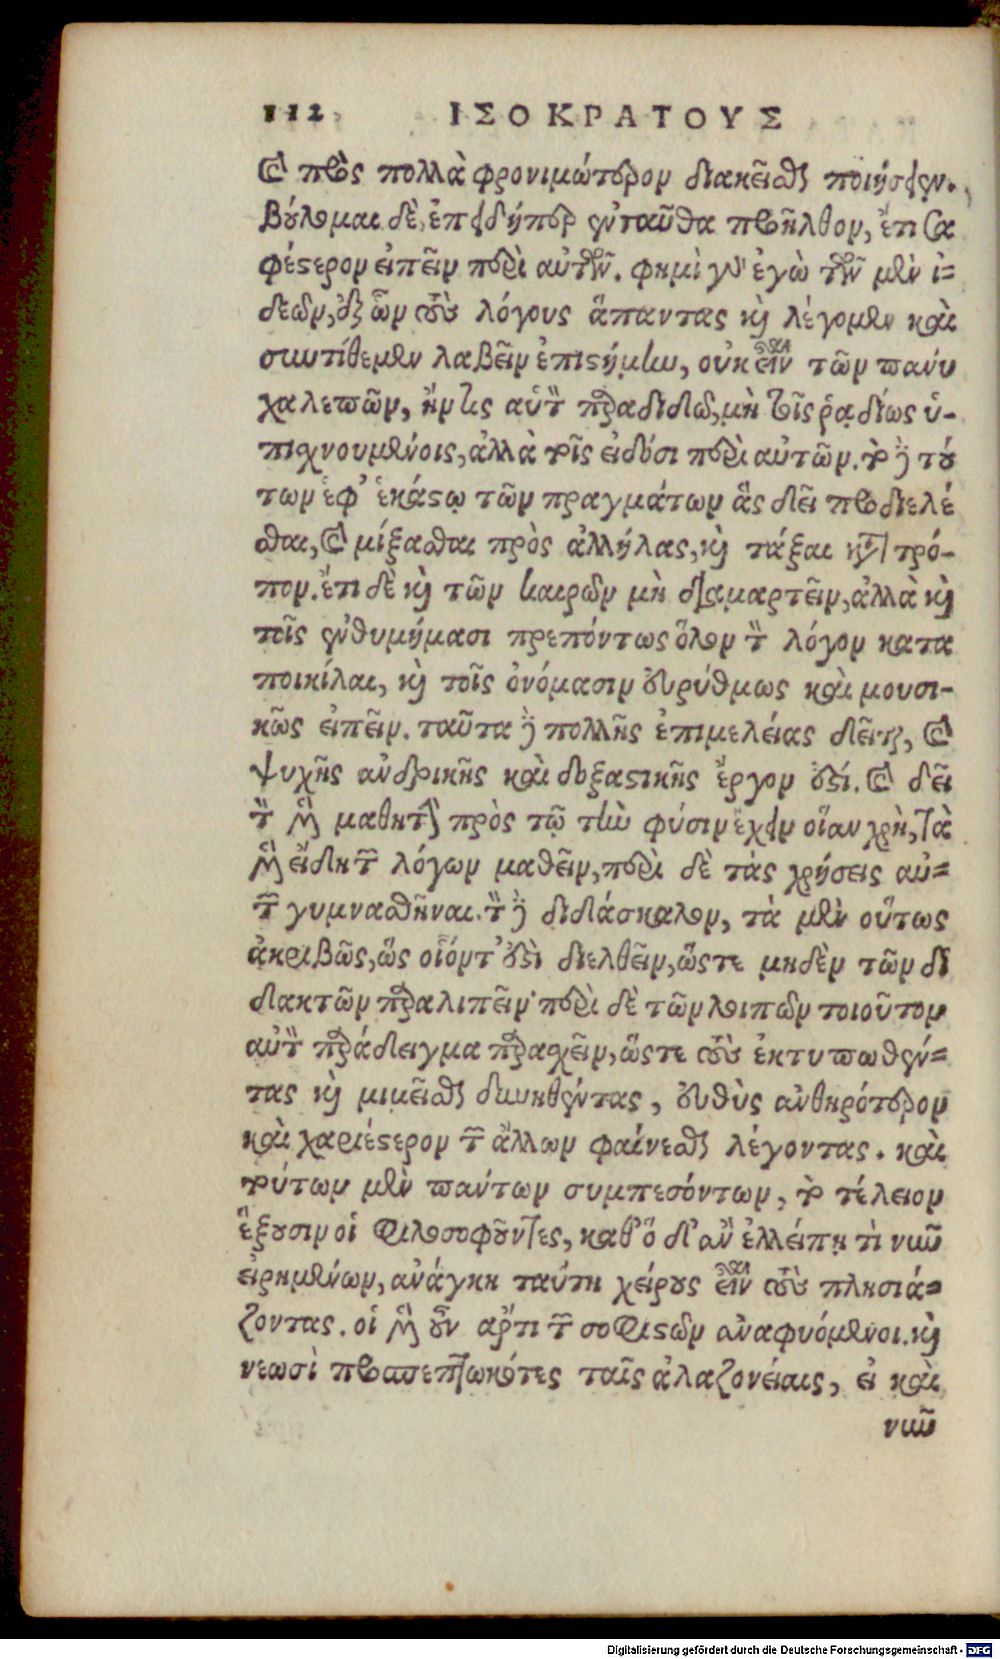 112 ΙΣΟΚΡΑΤΟΥΣ
καὶ πρὸς πολλὰ φρονιμώτερον διακεῖσθαι ποιήσειεν.
βούλομαι δὲ, ἐπειδήπερ ἐνταῦθα προῆλθον, ἔτι σα
φέστερον εἰπεῖν περὶ αὐτῶν. φημὶ γὰρ ἐγὼ τῶν μὲν ἰ-
δεῶν, ἐξ ὧν τοὺς λόγους ἅπαντας καὶ λέγομεν καὶ
συντίθεμεν λαβεῖν ἐπιστήμην, οὐκ εἶναι τῶν πανυ
χαλεπῶν, ἤν τις αὑτὸν παραδιδῶ, μὴ τοῖς ῥᾳδίως ὑ-
πισχνουμένοις, ἀλλὰ τοῖς εἰδόσι περὶ αὐτῶν. τὸ δὲ τού
των ἐφ' ἑκάστῳ τῶν πραγμάτων ἃς δεῖ προδιελέ
σθαι, καὶ μίξασθαι πρὸς ἀλλήλας, καὶ τάξαι κατὰ τρό-
πον. ἔτι δὲ καὶ τῶν καιρῶν μὴ διαμαρτεῖν, ἀλλὰ καὶ
τοῖς ἐνθυμήμασι πρεπόντως ὅλον τὸν λόγον κατα
ποικίλαι, καὶ τοῖς ὀνόμασιν εὐρύθμως καὶ μουσι-
κῶς εἰπεῖν. ταῦτα δὲ πολλῆς ἐπιμελείας δεῖται, καὶ
ψυχῆς ανδρικῆς καὶ δοξαστικῆς ἔργον ἐστί. καὶ δεῖ
τὸν μὲν μαθητὴν πρὸς τῷ τὴν φύσιν ἔχειν οἵαν χρὴ, τὰ
μὲν εἴδη τῶν λόγων μαθεῖν, περὶ δὲ τὰς χρήσεις αὐ-
τῶν γυμνασθῆναι. τὸν δὲ διδάσκαλον, τὰ μὲν οὕτως
ἀκριβῶς, ὥς οἷόντ' ἐστὶ διελθεῖν, ὥστε μηδὲν τῶν δι
δακτῶν παραλιπεῖν· περὶ δὲ τῶν λοιπῶν τοιοῦτον
αὑτὸν παράδειγμα παρασχεῖν, ὥστε τοὺς ἐκτυπωθέν-
τας καὶ μιμεῖσθαι δυνηθέντας, εὐθὺς ανθηρότερον
καὶ χαριέστερον τῶν ἄλλων φαίνεσθαι λέγοντας. καὶ
τούτων μὲν παντων συμπεσόντων, τὸ τέλειον
ἕξουσιν οἱ φιλοσοφοῦντες, καθ' ὃ δ' αν ἐλλείπῃ τὶ τῶν
εἰρημένων, ανάγκη ταύτῃ χείρους εἶναι τοὺς πλησιά-
ζοντας. οἱ μὲν οὖν αρτι τῶν σοφιστῶν αναφυόμενοι. καὶ
νεωστὶ προσπεπτωκότες ταῖς ἀλαζονείαις, εἰ καὶ
νῦν
Digitalisierung gefördert durch die Deutsche Forschungsgemeinschaft - DFG